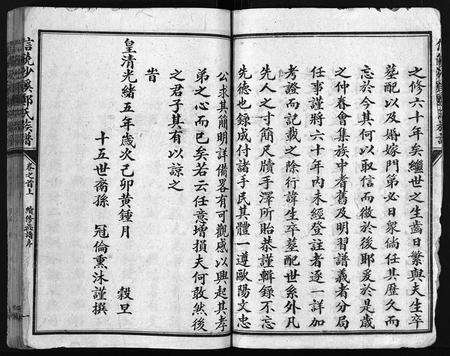 之修六十年矣繼世之生齒日繁與夫生卒
墓配以及婚嫁門弟必日衆倘任其歷久而
忘於今其何以取信而徵於後耶爰於是歲
之仲春會集族中耆舊及明習譜義者分局
任事謹將六十年内未經登註者逐一詳加
考證而記載之除行諱生卒墓配世系外凡
先人之寸簡尺牘手澤所貽恭謹輯錄不忘
先德也錄成付諸手民其體一遵歐陽文忠
公求其簡明詳備畧有可觀感以興起其孝
弟之心而已矣若云任意增損夫何敢然後
之君子其有以諒之
皇清光緒五年歲次己卯黃鍾月 穀旦
十五世裔孫 冠倫熏沐謹撰
卷之首上 續修族譜序